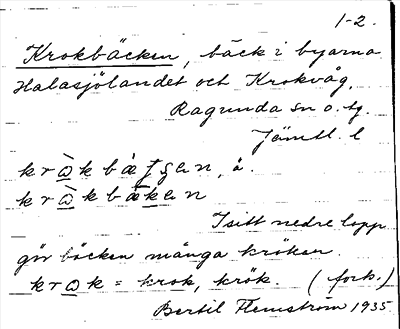 1-2.
Krokbäcken, bäck i byarna
Halasjölandet och Krokvåg,
Ragunda sn o. tg.
Jämtl. l
I sitt nedre lopp
gör bäcken många krökar.
= krok, krök. (fork.)
Bertil Flemström 1935